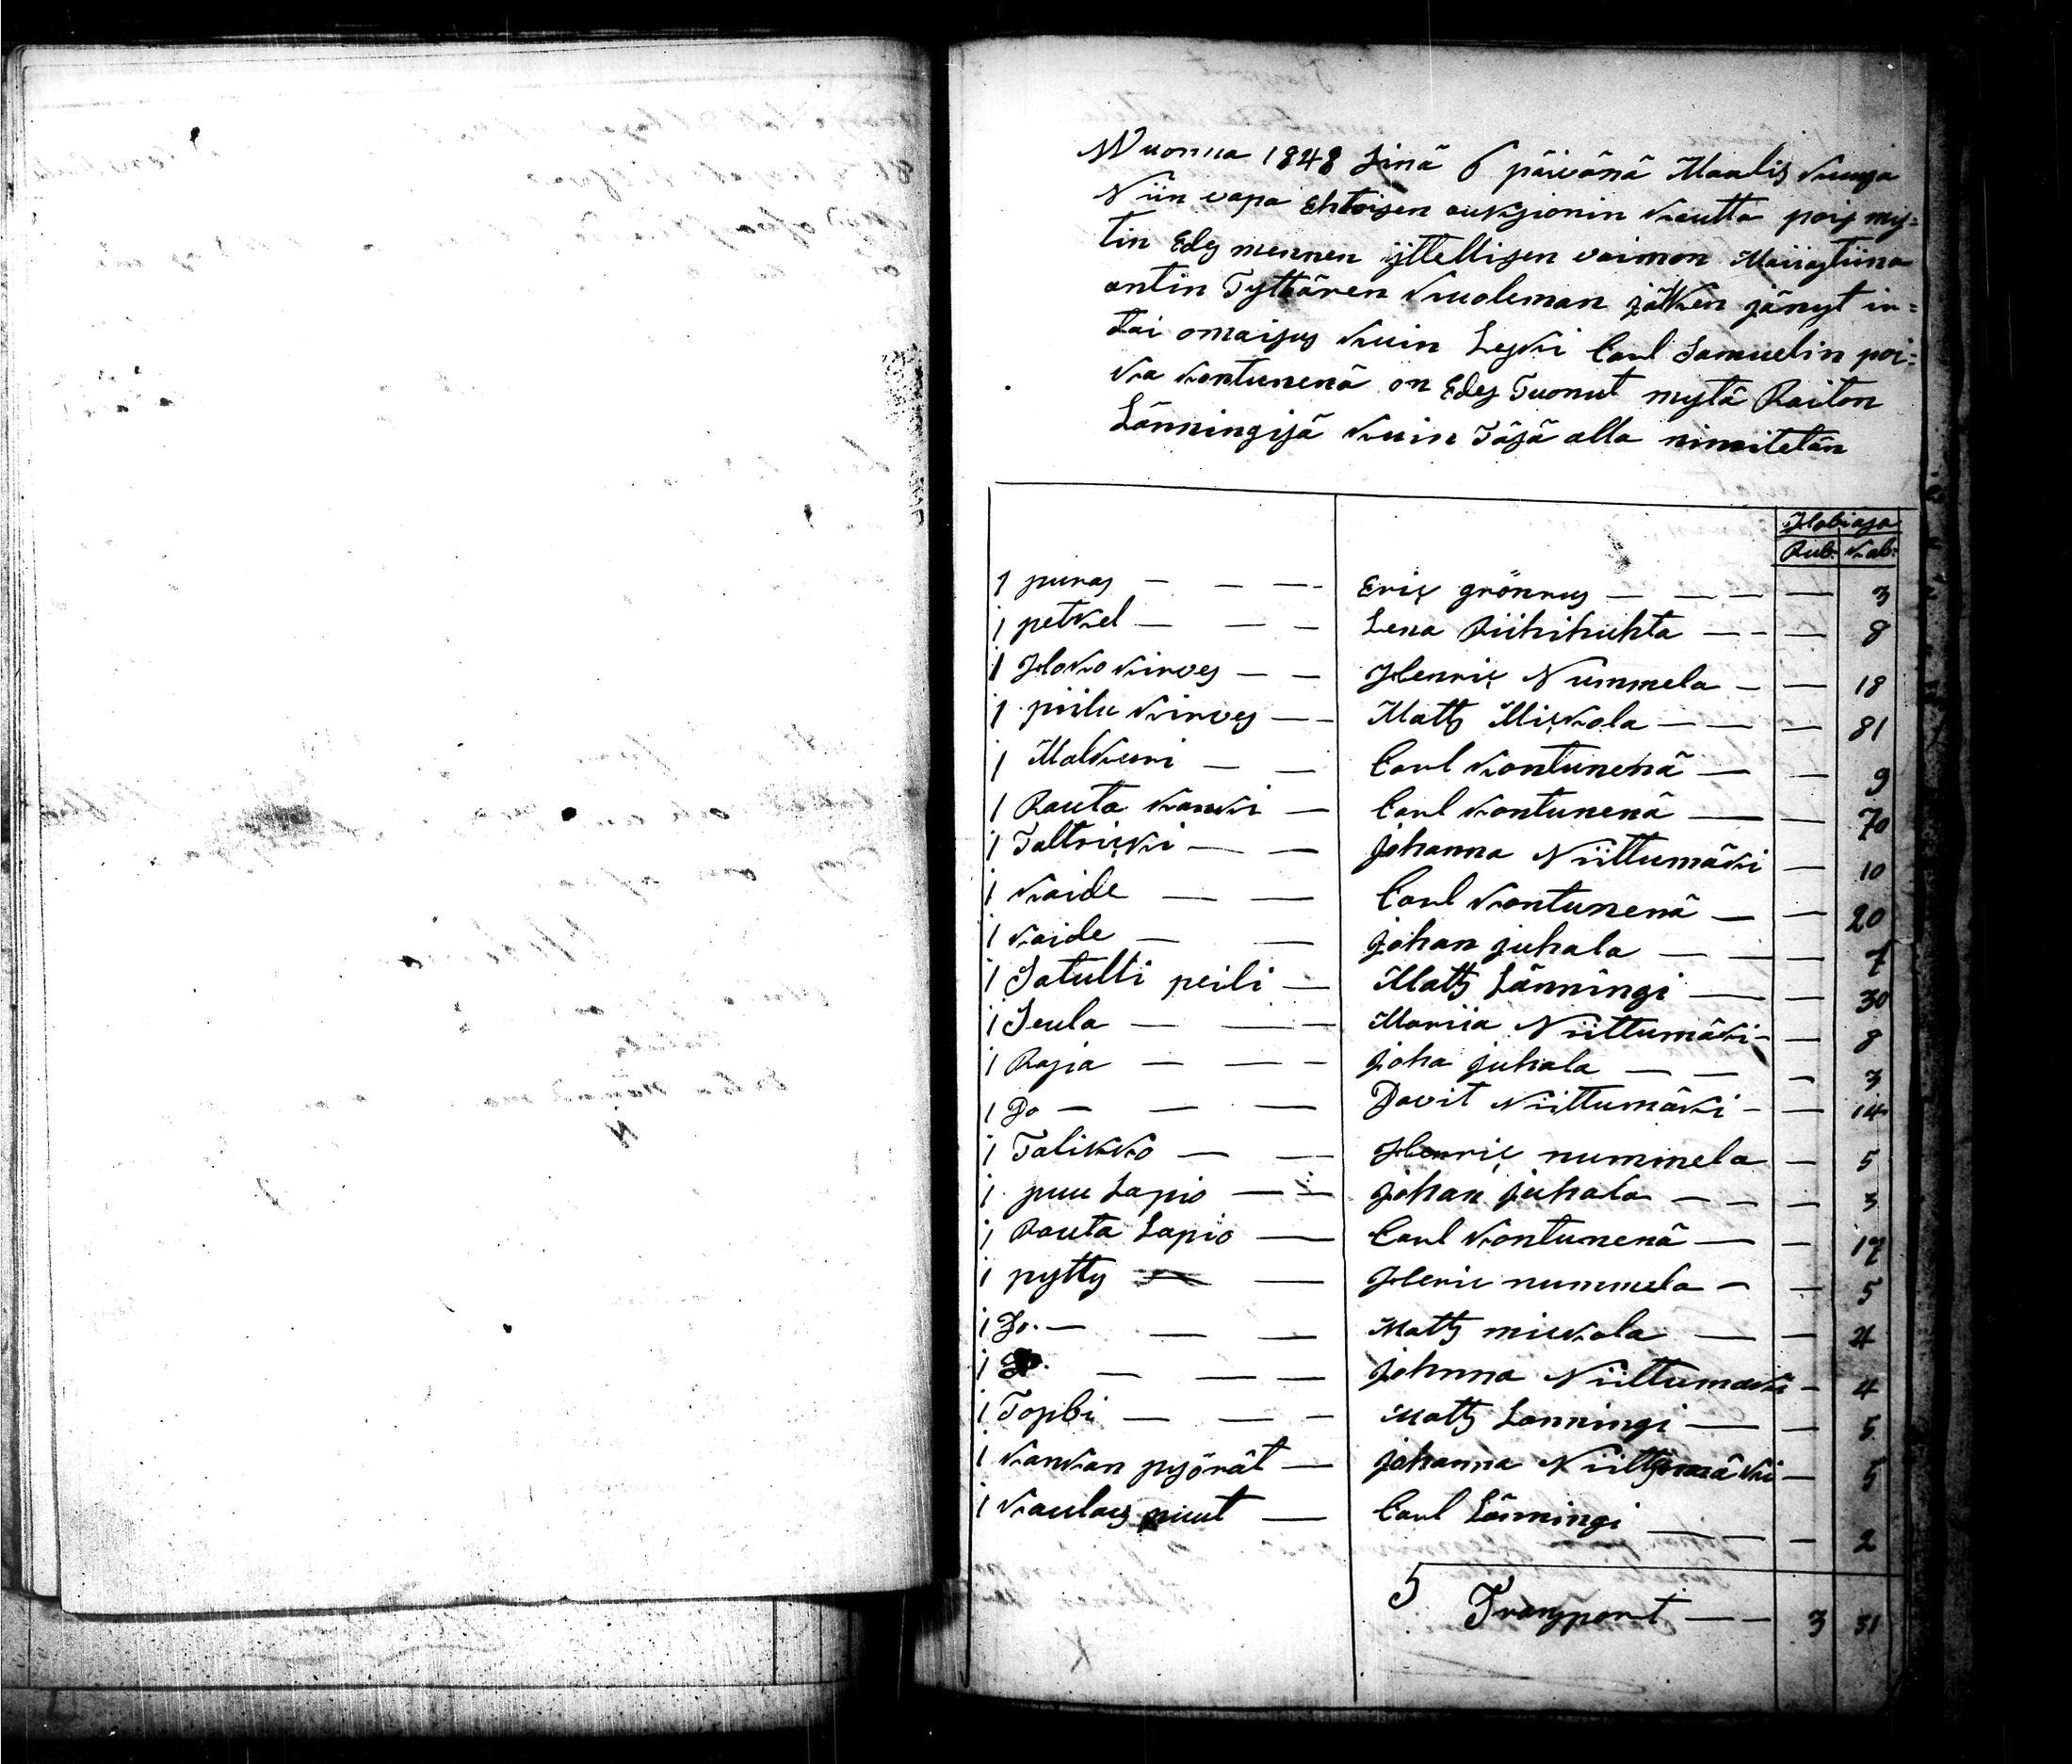 Wuonna 1848 Sinä 6 päivänä Maalis kuusa
Niin vapa Ehtoisen auksionin kautta pois my=
tin Edes mennen ijttellisen vaimon Maiiastiina
antin Tyttären kuoleman jälken jänyt ir=
tai omaisus kuin Leski Carl Samuelin poi=
ka kontunenä on Edes Tuonut mytä Raiton
Länningisä kuin Täsä alla nimitetän
Hobiasa
Rub. kab:
1 puras — — — Eric grönrus — — — — 3
1 petkel — — — Lena Riihihuhta — — — 8
1 Hako kirves — — Henric Nummela — — 18
1 piilu kirves — — Matts Mickola — — — 81
1 Malkuri — — Carl kontunenä — — 9
1 Rauta kanki — Carl kontunenä — — 70
1 Taltricki — — Johanna Niittumäki — 10
1 kaide — — Carl kontunenä — — 20
1 kaide — — Johan juhala — — — 7
1 Satulli peili — Matts Länningi — — 30
1 Seula — — — Mariia Niittumäki - — 8
1 Rasia — — — Joha juhala — — — 3
1 Do — — — Davit Niittumäki - — 14
1 Talikko — — Henric nummela — 5
1 puu Lapio — — Johan juhala — — — 3
1 Rauta Lapio — Carl kontunenä — — 17
1 pytty — Heric nummela — — 5
1 Do. — — — Matts mickola — — 4
1 Do. — — — Johnna Niittumäki — 4
1 Topbi — — — Matts Lanningi — — 5
1 kankan pyörät — Johanna Niittymäki — 5
1 kaulaus puut — Carl Länningi — — — 2
5 Transport — — 3 31